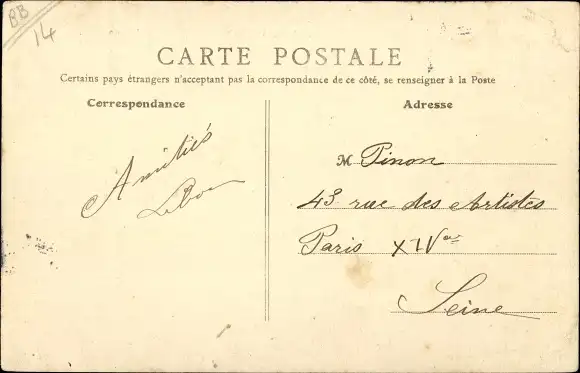 BB
14
CARTE POSTALE
Certains pays étrangers n'acceptant pas la correspondance de ce côté, se renseigner à la Poste
Correspondance
Amitiés
Adresse
M Pinon
43 rue des Artistes
Paris XIVe
Seine